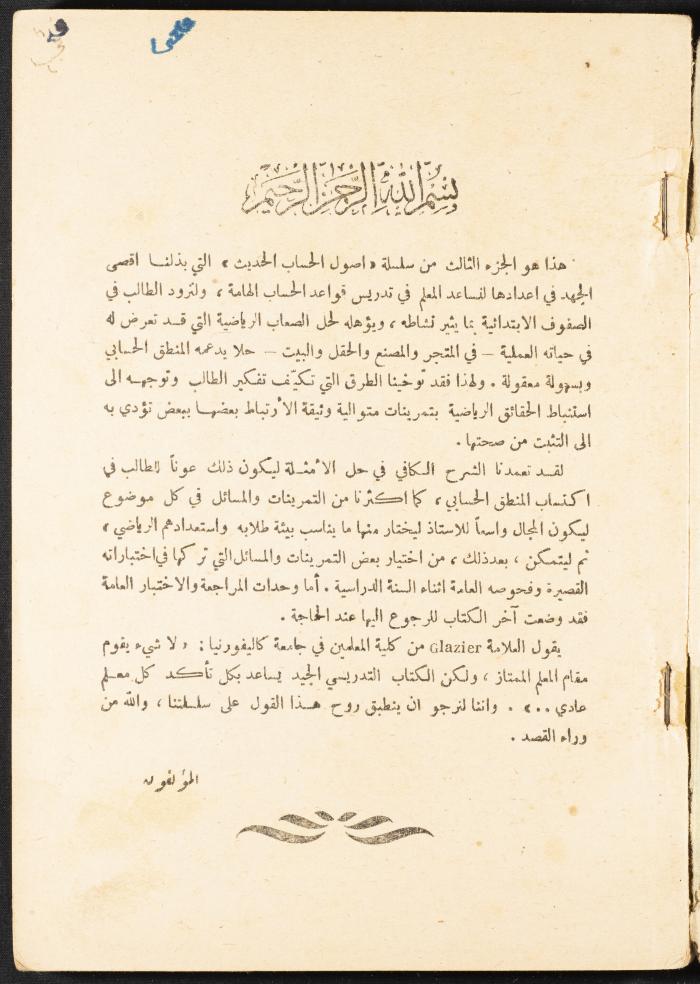 بسم الله الرحمن الرحيم
هذا هو الجزء الثالث من سلسلة «اصول الحساب الحديث» التي بذلنا اقصى
الجهد في اعدادها لنساعد المعلم في تدريس قواعد الحساب الهامة ، ولنزود الطالب في
الصفوف الابتدائية بما يثير نشاطه ، ويؤهله لحل الصعاب الرياضية التي قد تعرض له
في حياته العملية – في المتجر والمصنع والحقل والبيت – حلا يدعمه المنطق الحسابي
وبسهولة معقولة . ولهذا فقد توخينا الطرق التي تكيّف تفكير الطالب وتوجهه الى
استنباط الحقائق الرياضية بتمرينات متوالية وثيقة الأرتباط بعضها ببعض تؤدي به
الى التثبت من صحتها .
لقد تعمدنا الشرح الكافي في حل الأمثلة ليكون ذلك عوناً للطالب في
اكتساب المنطق الحسابي ، كما اكثرنا من التمرينات والمسائل في كل موضوع
ليكون المجال واسعاً للاستاذ ليختار منها ما يناسب بيئة طلابه واستعدادهم الرياضي ،
ثم ليتمكن ، بعد ذلك ، من اختيار بعض التمرينات والمسائل التي تركها في اختباراته
القصيرة وفحوصه العامة اثناء السنة الدراسية . أما وحدات المراجعة والاختبار العامة
فقد وضعت آخر الكتاب للرجوع اليها عند الحاجة .
يقول العلامة Glazier من كلية المعلمين في جامعة كاليفورنيا : « لا شيء يقوم
مقام المعلم الممتاز ، ولكن الكتاب التدريسي الجيد يساعد بكل تأكد كل معلم
عادي .. » . واننا لنرجو ان ينطبق روح هذا القول على سلسلتنا ، والله من
وراء القصد .
المؤلفون